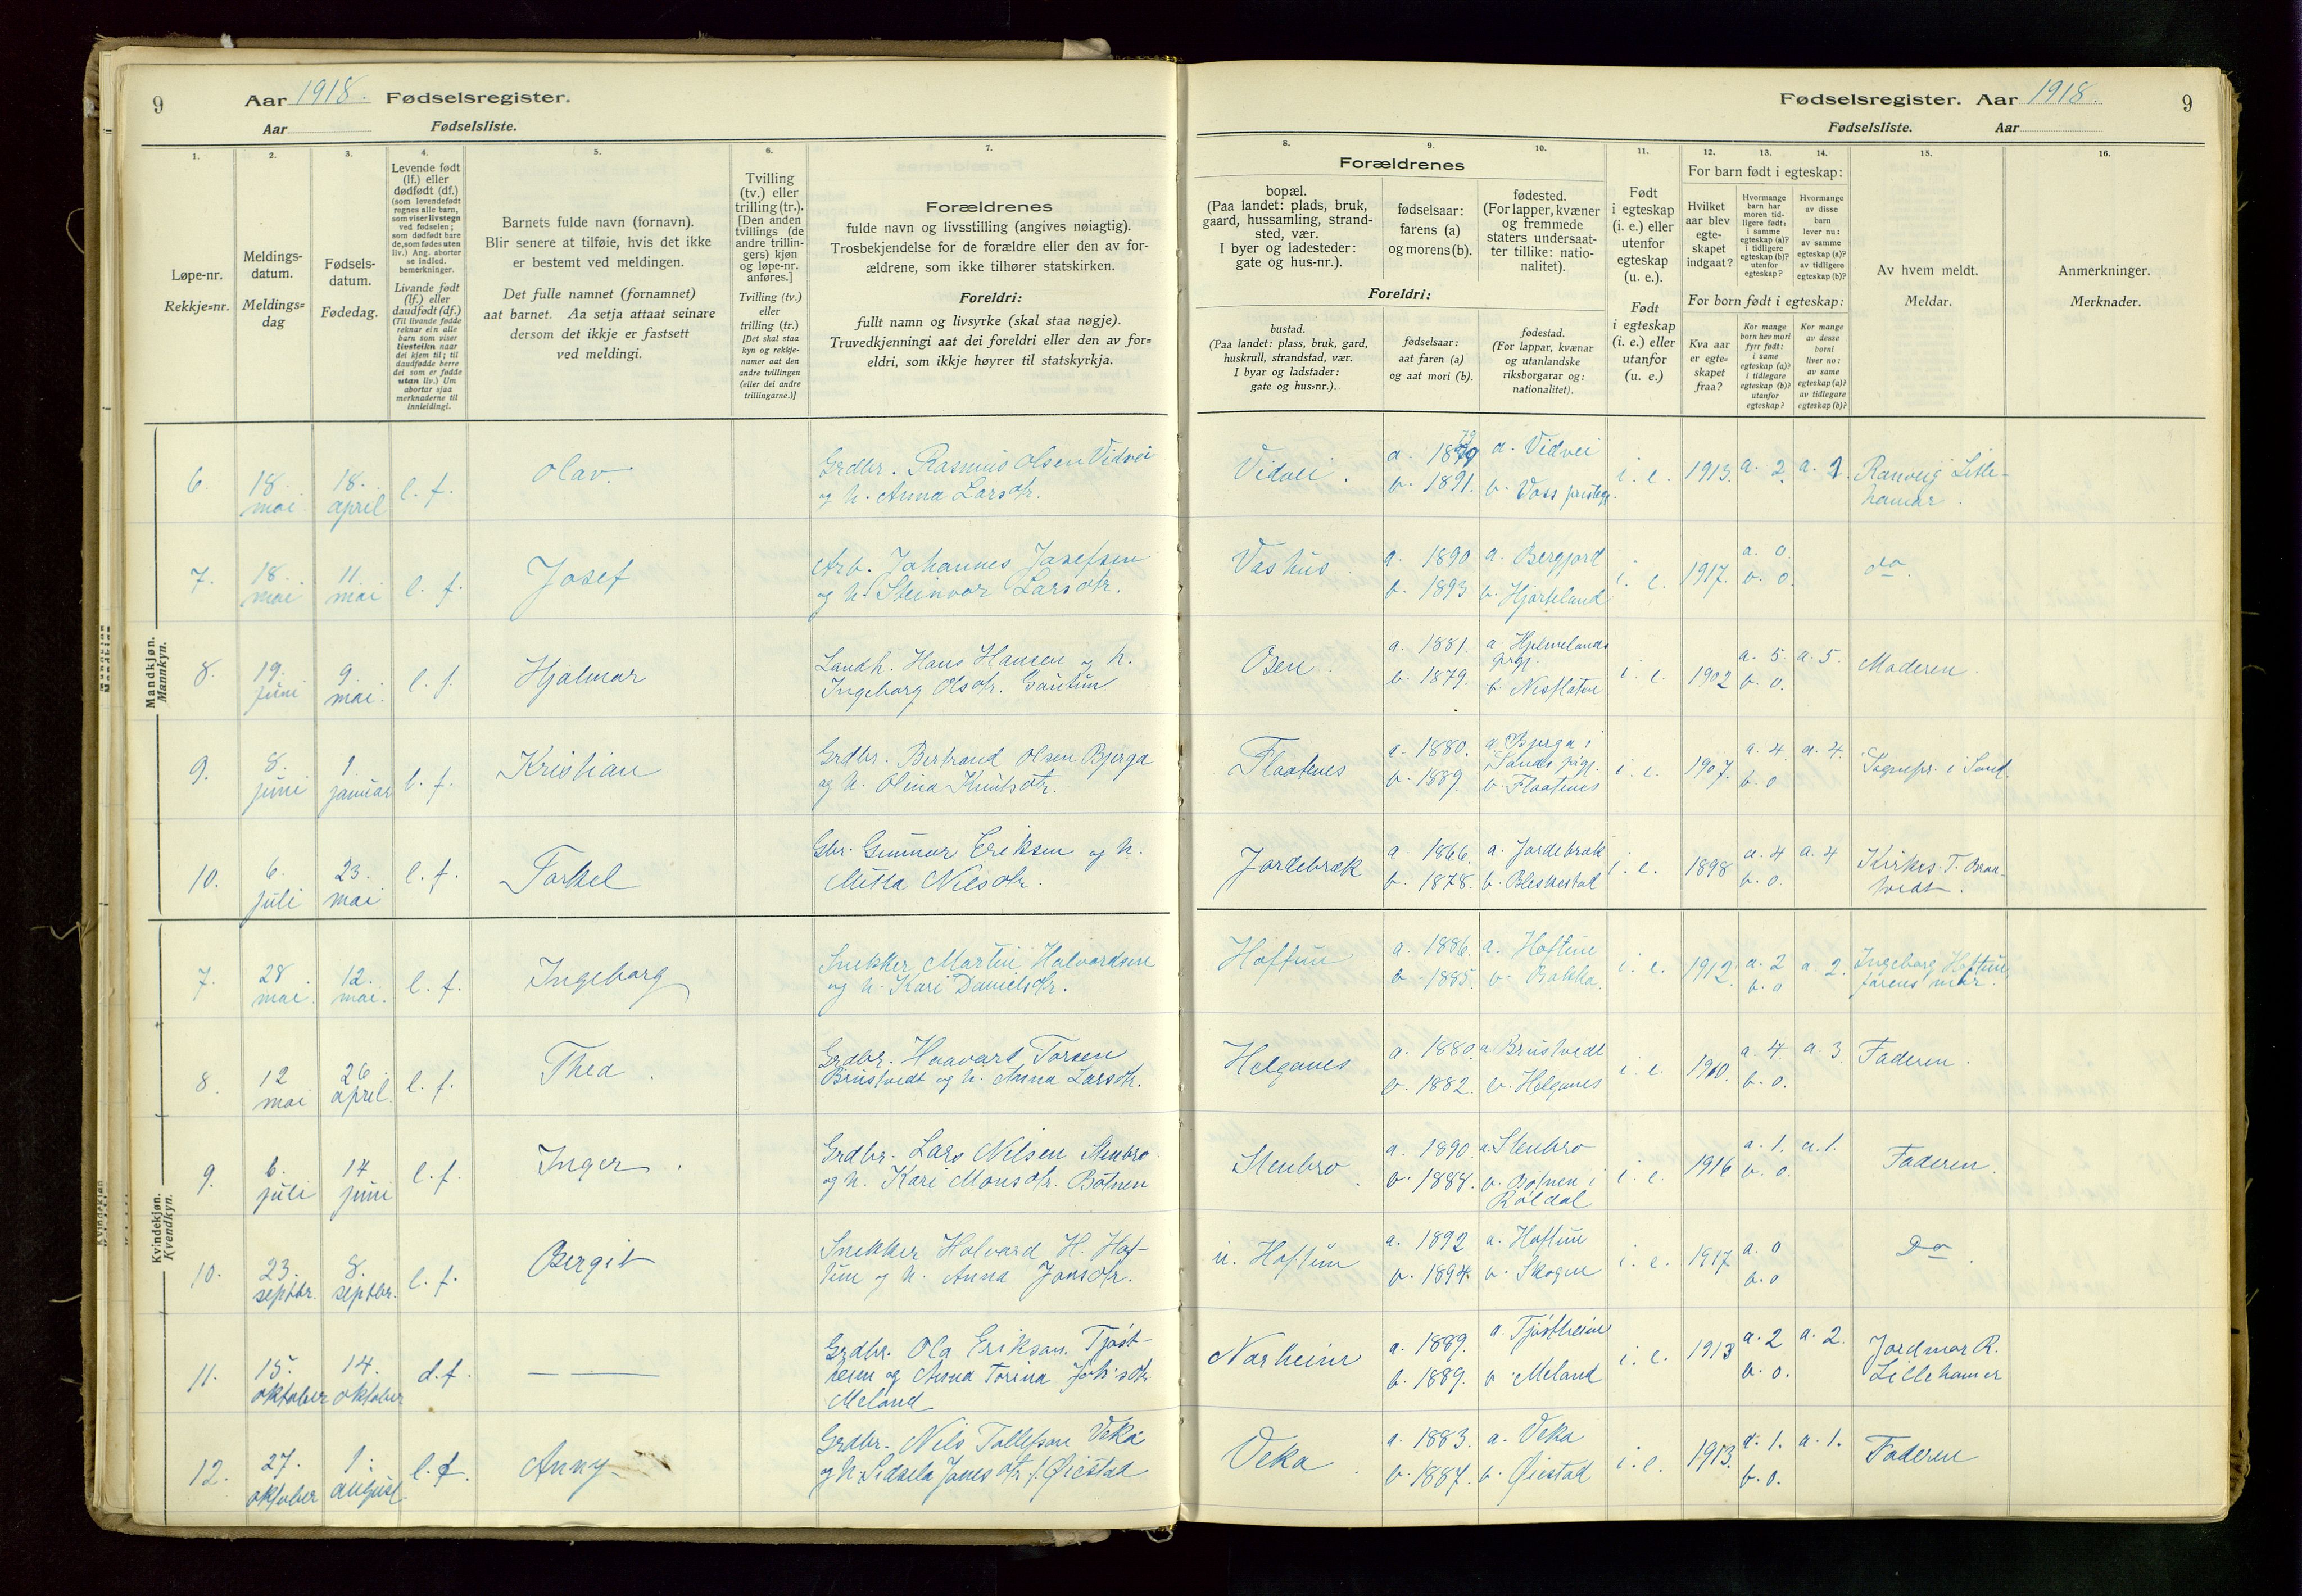 9
Aar 1918. Fødselsregister.
Aar
Fødselsliste.
1.
Løpe-nr.
Rekkje=nr.
2.
Meldings-
datum.
Meldings=
dag
3.
Fødsels-
datum.
Fødedag.
4.
Levende født
(lf.) eller
dødfødt (df.)
(som levendefødt
regnes alle barn,
som viser livstegn
ved fødselen;
som dødfødt bare
de, som fødes uten
liv.) Ang. aborter
se indled.
bemerkninger.
Livande født
(lf.) eller
daudfødt (df.)
(Til livande fødde
reknar ein alle
barn som viser
livsteikn naar
dei kjem til; til
daudfødde berre
dei som er fødde
utan liv.) Um
abortar sjaa
merknaderne til
innleidingi.
5.
Barnets fulde navn (fornavn).
Blir senere at tilføie, hvis det ikke
er bestemt ved meldingen.
Det fulle namnet (fornamnet)
aat barnet. Aa setja attaat seinare
dersom det ikkje er fastsett
ved meldingi.
6.
Tvilling
(tv.) eller
trilling (tr.).
[Den anden
tvillings (de
andre trillin-
gers) kjøn
og løpe-nr.
anføres.]
Tvilling (tv.)
eller
trilling (tr.)
[Det skal staa
kyn og rekkje-
numer aat den
andre tvillingen
(eller dei andre
trillingarne.)]
7.
Forældrenes
fulde navn og livsstilling (angives nøiagtig).
Trosbekjendelse for de forældre eller den av for-
ældrene, som ikke tilhører statskirken.
Foreldri:
fullt namn og livsyrke (skal staa nøgje).
Truvedkjenningi aat dei foreldri eller den av for=
eldri, som ikkje høyrer til statskyrkja.
Mandkjøn.
Mannkyn.
6. 18. mai 18. april l. f. Olav.
Grdbr. Rasmus Olsen Vidvei
og h. Anna Larsdtr.
7. 18. mai 11. mai l. f. Josef
Arb. Johannes Josefsen
og h. Steinvor Larsdtr.
8. 19. juni 9. mai. l. f. Hjalmar
Landh. Hans Hansen og h.
Ingeborg Olsdtr. Gautun.
9. 8. juni 1. januar l. f. Kristian
Grdbr. Bertrand Olsen Bjerga
og h. Olina Knutsdtr.
10. 6. juli 23. mai l. f. Torkel
Gbr. Gunnar Eriksen og h.
Nilsdtr.
Kvindekjøn.
Kvendkyn.
7. 28 mai. 12. mai. l. f. Ingeborg
Snekker Martin Halvardsen
og h. Kari Danielsdtr.
8. 12 mai 26. april. l. f. Thea.
Grdbr. Haavard Torsen
og h. Anna Larsdtr.
9. 6. juli 14 juni l. f. Inger.
Grdbr. Lars Nilsen Stenbro
og h. Kari Monsdtr. Botnen
10. 23. septbr. 8. septbr. l. f. Bergit
Snekker Halvard H. Hof-
tun og h. Anna Jonsdtr.
11. 15. oktober 14. oktober d. f. — —
Grdbr. Ola Erikson Tjøst-
heim og Anna Torina Joh:sdtr.
Meland
12. 27. oktober 1: august l. f. Anny
Grdbr. Nils Tollefson Veka
og h. Sidsela Jonesdtr f. Øiestad
Fødselsregister. Aar 1918.
9
Fødselsliste. Aar
8.
Forældrenes
bopæl.
(Paa landet: plads, bruk,
gaard, hussamling, strand-
sted, vær.
I byer og ladesteder:
gate og hus-nr.).
Foreldri:
bustad.
(Paa landet: plass, bruk, gard,
huskrull, strandstad, vær.
I byar og ladstader:
gate og hus=nr.).
9.
fødselsaar:
farens (a)
og morens (b).
fødselsaar:
aat faren (a)
og aat mori (b).
10.
fødested.
(For lapper, kvæner
og fremmede
staters undersaat-
ter tillike: natio-
nalitet).
fødestad.
(For lappar, kvænar
og utanlandske
riksborgarar og:
nationalitet).
11.
Født
i egteskap
(i. e.) eller
utenfor
egteskap
(u. e.).
Født
i egteskap
(i. e.) eller
utanfor
(u. e.)
For barn født i egteskap:
12.
Hvilket
aar blev
egte-
skapet
indgaat?
13.
Hvormange
barn har
moren tid-
ligere født:
i samme
egteskap (a)?
i tidligere
egteskap (b)?
utenfor
egteskap?
14.
Hvormange
av disse
barn
lever nu:
av samme
egteskap (a)?
av tidligere
egteskap (b)?
For born født i egteskap:
Kva aar
er egte-
skapet
fraa?
Kor mange
born hev mori
fyrr født:
i same
egteskap (a)?
i tidlegare
egteskap (b)?
utanfor
egteskap?
Kor mange
av desse
borni
liver no:
av same
egteskap (a)?
av tidlegare
egteskap (b)?
15.
Av hvem meldt.
Meldar.
16.
Anmerkninger.
Merknader.
Vidvei. a. 1879 b. 1891. a. Vidvei b. Voss i. e. 1913. a. 2. a. 2. Ranveig Lille-
hamar.
Vashus. a. 1890 b. 1893 a. Bergjord b. Hjorteland i. e. 1917. a. 0. b. 0. do.
Osen a. 1881. b. 1879. a. Hjelmelands prgj. b. Nesflaten i. e. 1902 a. 5. b. 0. a. 5. Moderen.
Flaatnes a. 1880. b. 1889. a. Bjerga i Sands prgj. b. Flaatnes i. e. 1907. a. 4. b. 0 a. 4. Sognepr. i Sand
Jordebræk a. 1866. b. 1878. a. Jordebræk b. Bleskestad i. e. 1898 a. 4 b. 0. a. 4 Kirkes. T. Braa-
tvedt.
Hoftun a. 1886. b. 1885. a. Hoftun b. Bakka. i. e. 1912. a. 2 b. 0 a. 2. Ingeborg Hoftun
farens mor.
Helganes a. 1880. b. 1882. a. b. Helganes i. e. 1910. a. 4. b. 0. a. 3 Faderen.
Stenbro. a. 1890. b. 1888. a. Stenbro b. Botnen i Røldal i. e. 1916 a. 1. b. 0. a. 1. Faderen.
n. Hoftun a. 1892 b. 1894. a. Hoftun b. Skogen i. e. 1917 a. 0 b. 0 Do.
Narheim a. 1889. b. 1889. a. Tjøstheim b. Meland i. e. 1913 a. 2 b. 0. a. 2. Jordmor R.
Lillehamer
Veka a. 1883. b. 1887. a. Veka b. Øiestad i. e. 1913. a. 1. b. 0. a. 1. Faderen